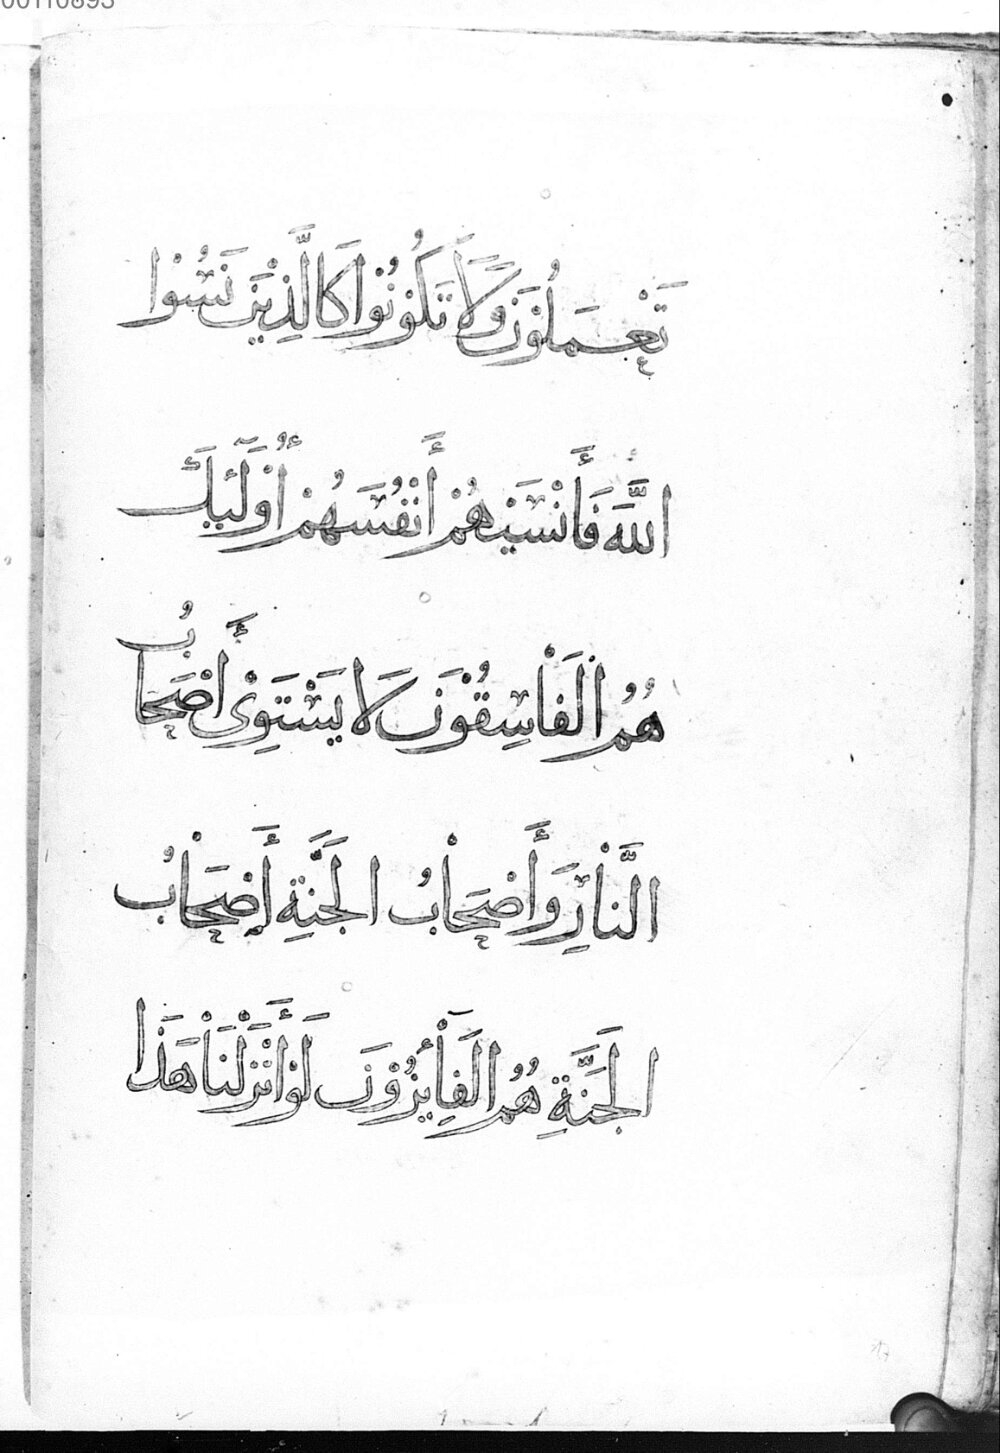 00110893
تَعْمَلُوْنَ وَلَا تَكُوْنُوْا كَالَّذِيْنَ نَسُوْا
اللَّهَ فَأَنْسَيٰهُمْ أَنْفُسَهُمْ أُوْلَٰئِكَ
هُمُ الْفَاسِقُوْنَ لَا يَسْتَوِىْ أَصْحَابُ
النَّارِ وَأَصْحَابُ الْجَنَّةِ أَصْحَابُ
الْجَنَّةِ هُمُ الْفَآئِزُوْنَ لَوْ أَنْزَلْنَا هَذَا